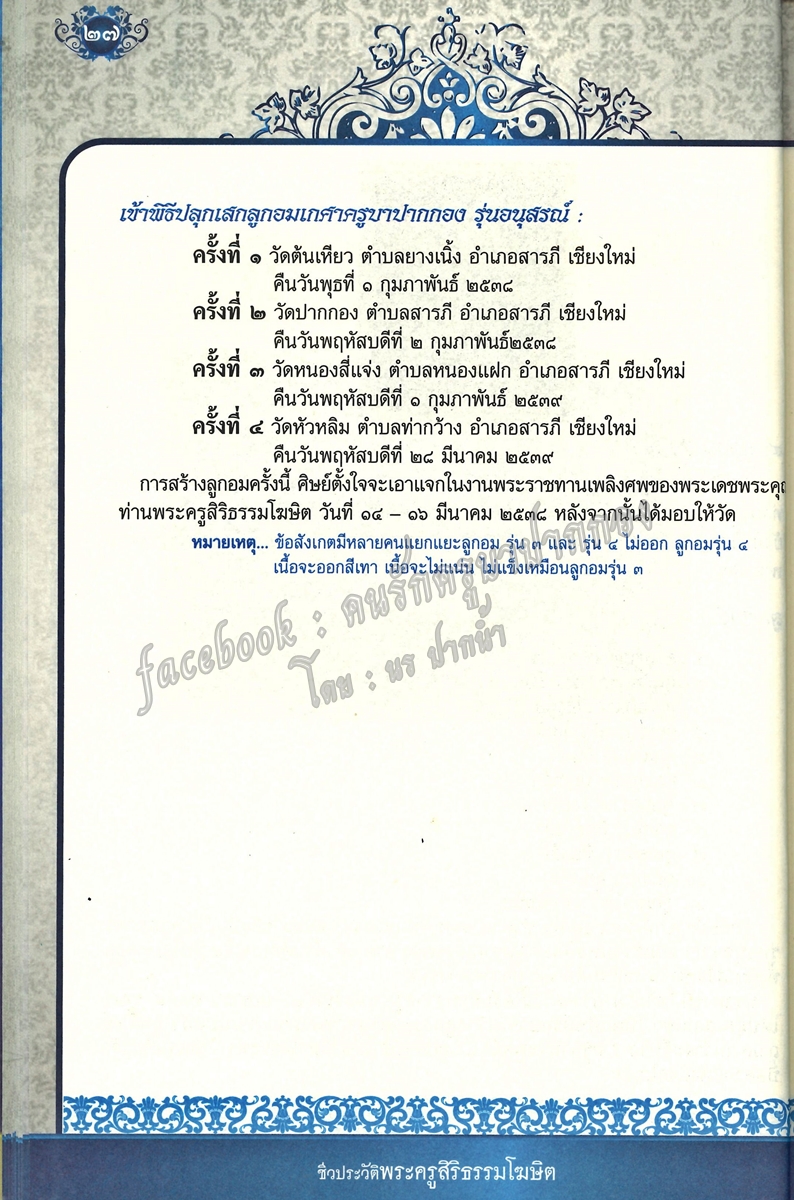 ๒๗
เข้าพิธีปลุกเสกลูกอมเกศาครูบาปากกอง รุ่นอนุสรณ์ :
ครั้งที่ ๑ วัดต้นเหียว ตำบลยางเนิ้ง อำเภอสารภี เชียงใหม่
คืนวันพุธที่ ๑ กุมภาพันธ์ ๒๕๓๘
ครั้งที่ ๒ วัดปากกอง ตำบลสารภี อำเภอสารภี เชียงใหม่
คืนวันพฤหัสบดีที่ ๒ กุมภาพันธ์๒๕๓๘
ครั้งที่ ๓ วัดหนองสี่แจ่ง ตำบลหนองแฝก อำเภอสารภี เชียงใหม่
คืนวันพฤหัสบดีที่ ๑ กุมภาพันธ์ ๒๕๓๙
ครั้งที่ ๔ วัดหัวหลิม ตำบลท่ากว้าง อำเภอสารภี เชียงใหม่
คืนวันพฤหัสบดีที่ ๒๘ มีนาคม ๒๕๓๙
การสร้างลูกอมครั้งนี้ ศิษย์ตั้งใจจะเอาแจกในงานพระราชทานเพลิงศพของพระเดชพระคุณ
ท่านพระครูสิริธรรมโฆษิต วันที่ ๑๔ – ๑๖ มีนาคม ๒๕๓๘ หลังจากนั้นได้มอบให้วัด
หมายเหตุ... ข้อสังเกตมีหลายคนแยกแยะลูกอม รุ่น ๓ และ รุ่น ๔ ไม่ออก ลูกอมรุ่น ๔
เนื้อจะออกสีเทา เนื้อจะไม่แน่น ไม่แข็งเหมือนลูกอมรุ่น ๓
facebook : คนรักครูบาปากกอง
โดย : นร ปากน้ำ
ชีวประวัติพระครูสิริธรรมโฆษิต